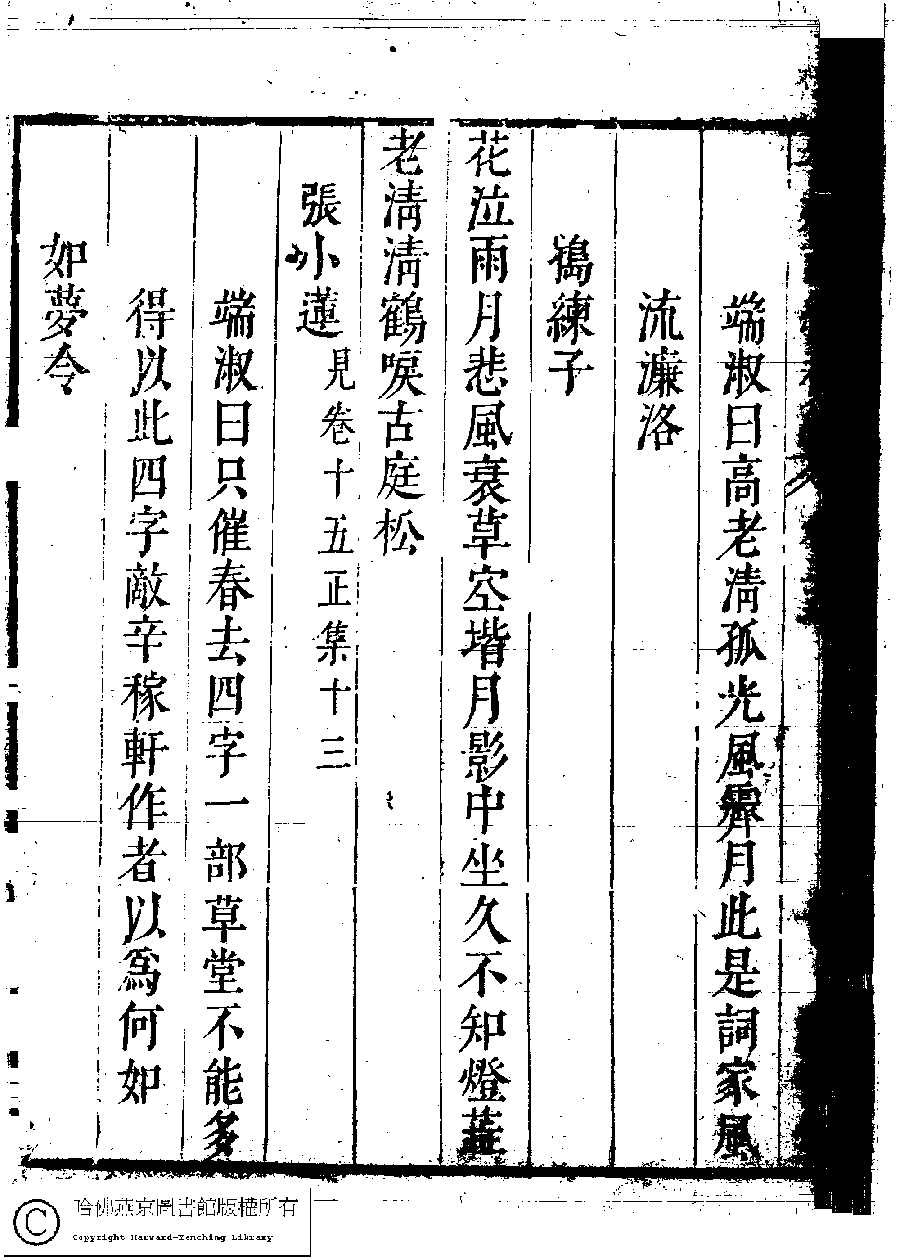 端淑曰高老淸孤光風霽月此是詞家風
流濂洛
搗練子
花泣雨月悲風衰草空堦月影中坐久不知燈蕋
老淸淸鶴唳古庭松
張小蓮見卷十五正集十三
端淑曰只催春去四字一部草堂不能多
得以此四字敵辛稼軒作者以爲何如
如夢令
哈佛燕京圖書館版權所有
Copyright Harvard-Yenching Library